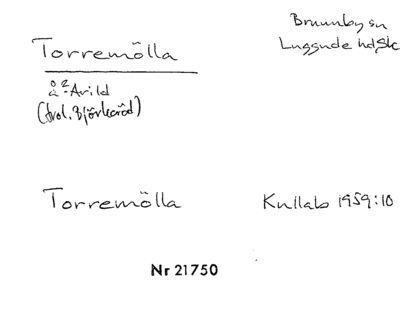 Torremölla
Brunnby sn
Luggude hd, Sk
å 2 Arild
(trol. Björkeröd)
Torremölla
Kullab 1959:10
Nr 21750